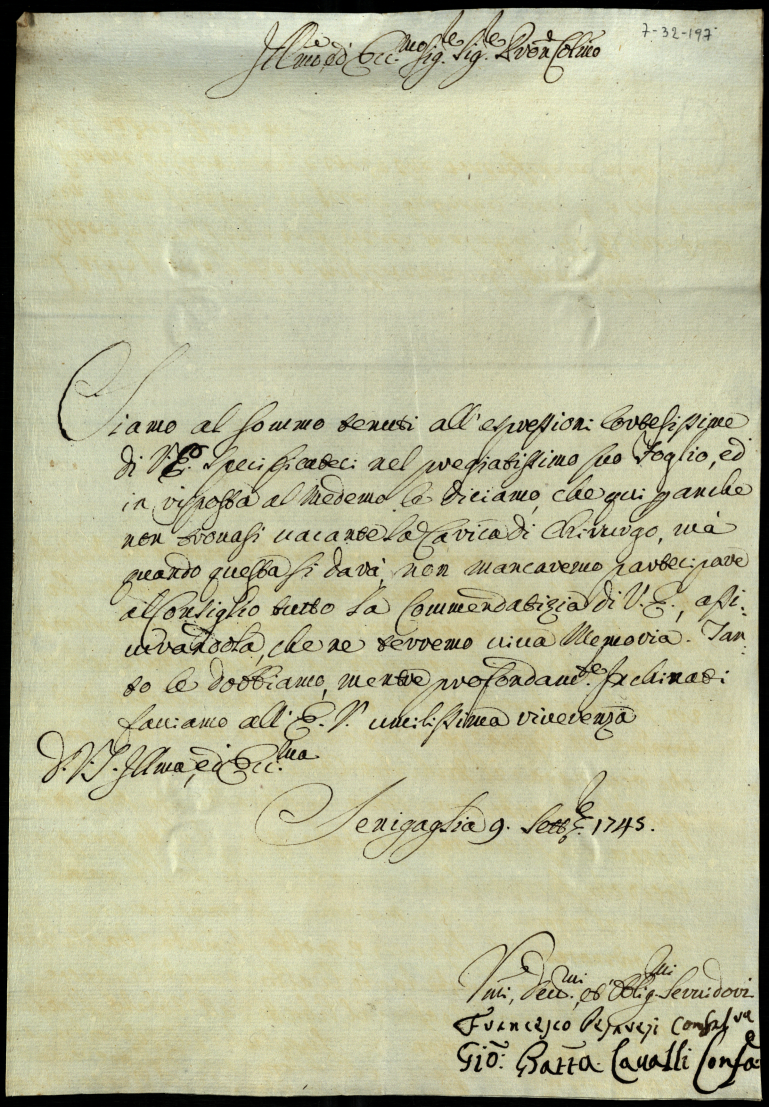 7-32-197
Illmo, ed Ecc.mo Sig.re Sig.re Pron Colmo
Siamo al sommo tenuti all'espressioni cortesissime
di V.E. specificateci nel pregiatissimo suo Foglio, ed
in risposta al medemo le diciamo, che qui p anche
non trovasi vacante la Carica di Chirurgo, mà
quando questa si darà, non mancaremo partecipare
al Consiglio tutto la Commendatizia di V.E., assi:
curandola, che ne terremo viva Memoria. Tan:
to le dobbiamo, mentre profondam.te Inchinati
facciamo all'E.V. umilissima riverenza
D.V.S. Illma, ed Ecc.ma
Senigaglia 9. Sett.e 1743.
Umi, Dev.mi, ed Oblig.mi Servidori
Francesco
Gio: Batta Cavalli Confa